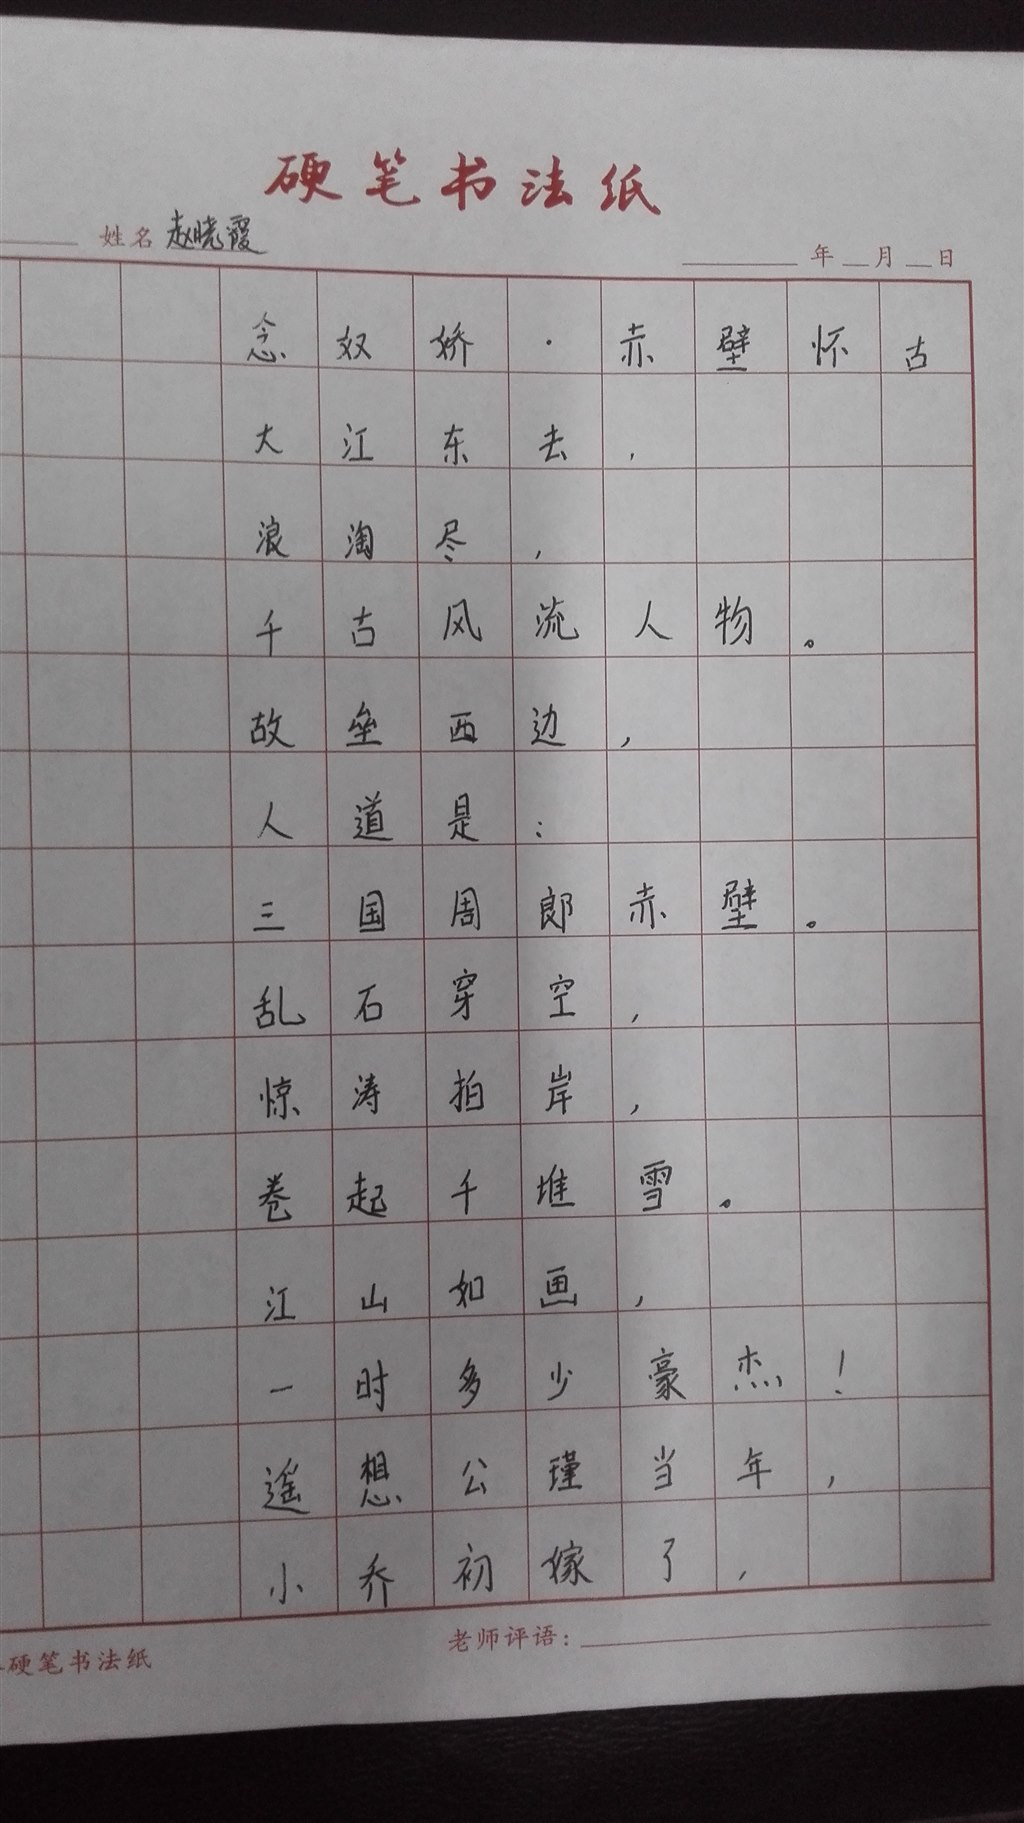 硬笔书法纸
姓名 赵晓霞
年 月 日
念奴娇·赤壁怀古
大江东去，
浪淘尽，
千古风流人物。
故垒西边，
人道是：
三国周郎赤壁。
乱石穿空，
惊涛拍岸，
卷起千堆雪。
江山如画，
一时多少豪杰！
遥想公瑾当年，
小乔初嫁了，
老师评语：
硬笔书法纸